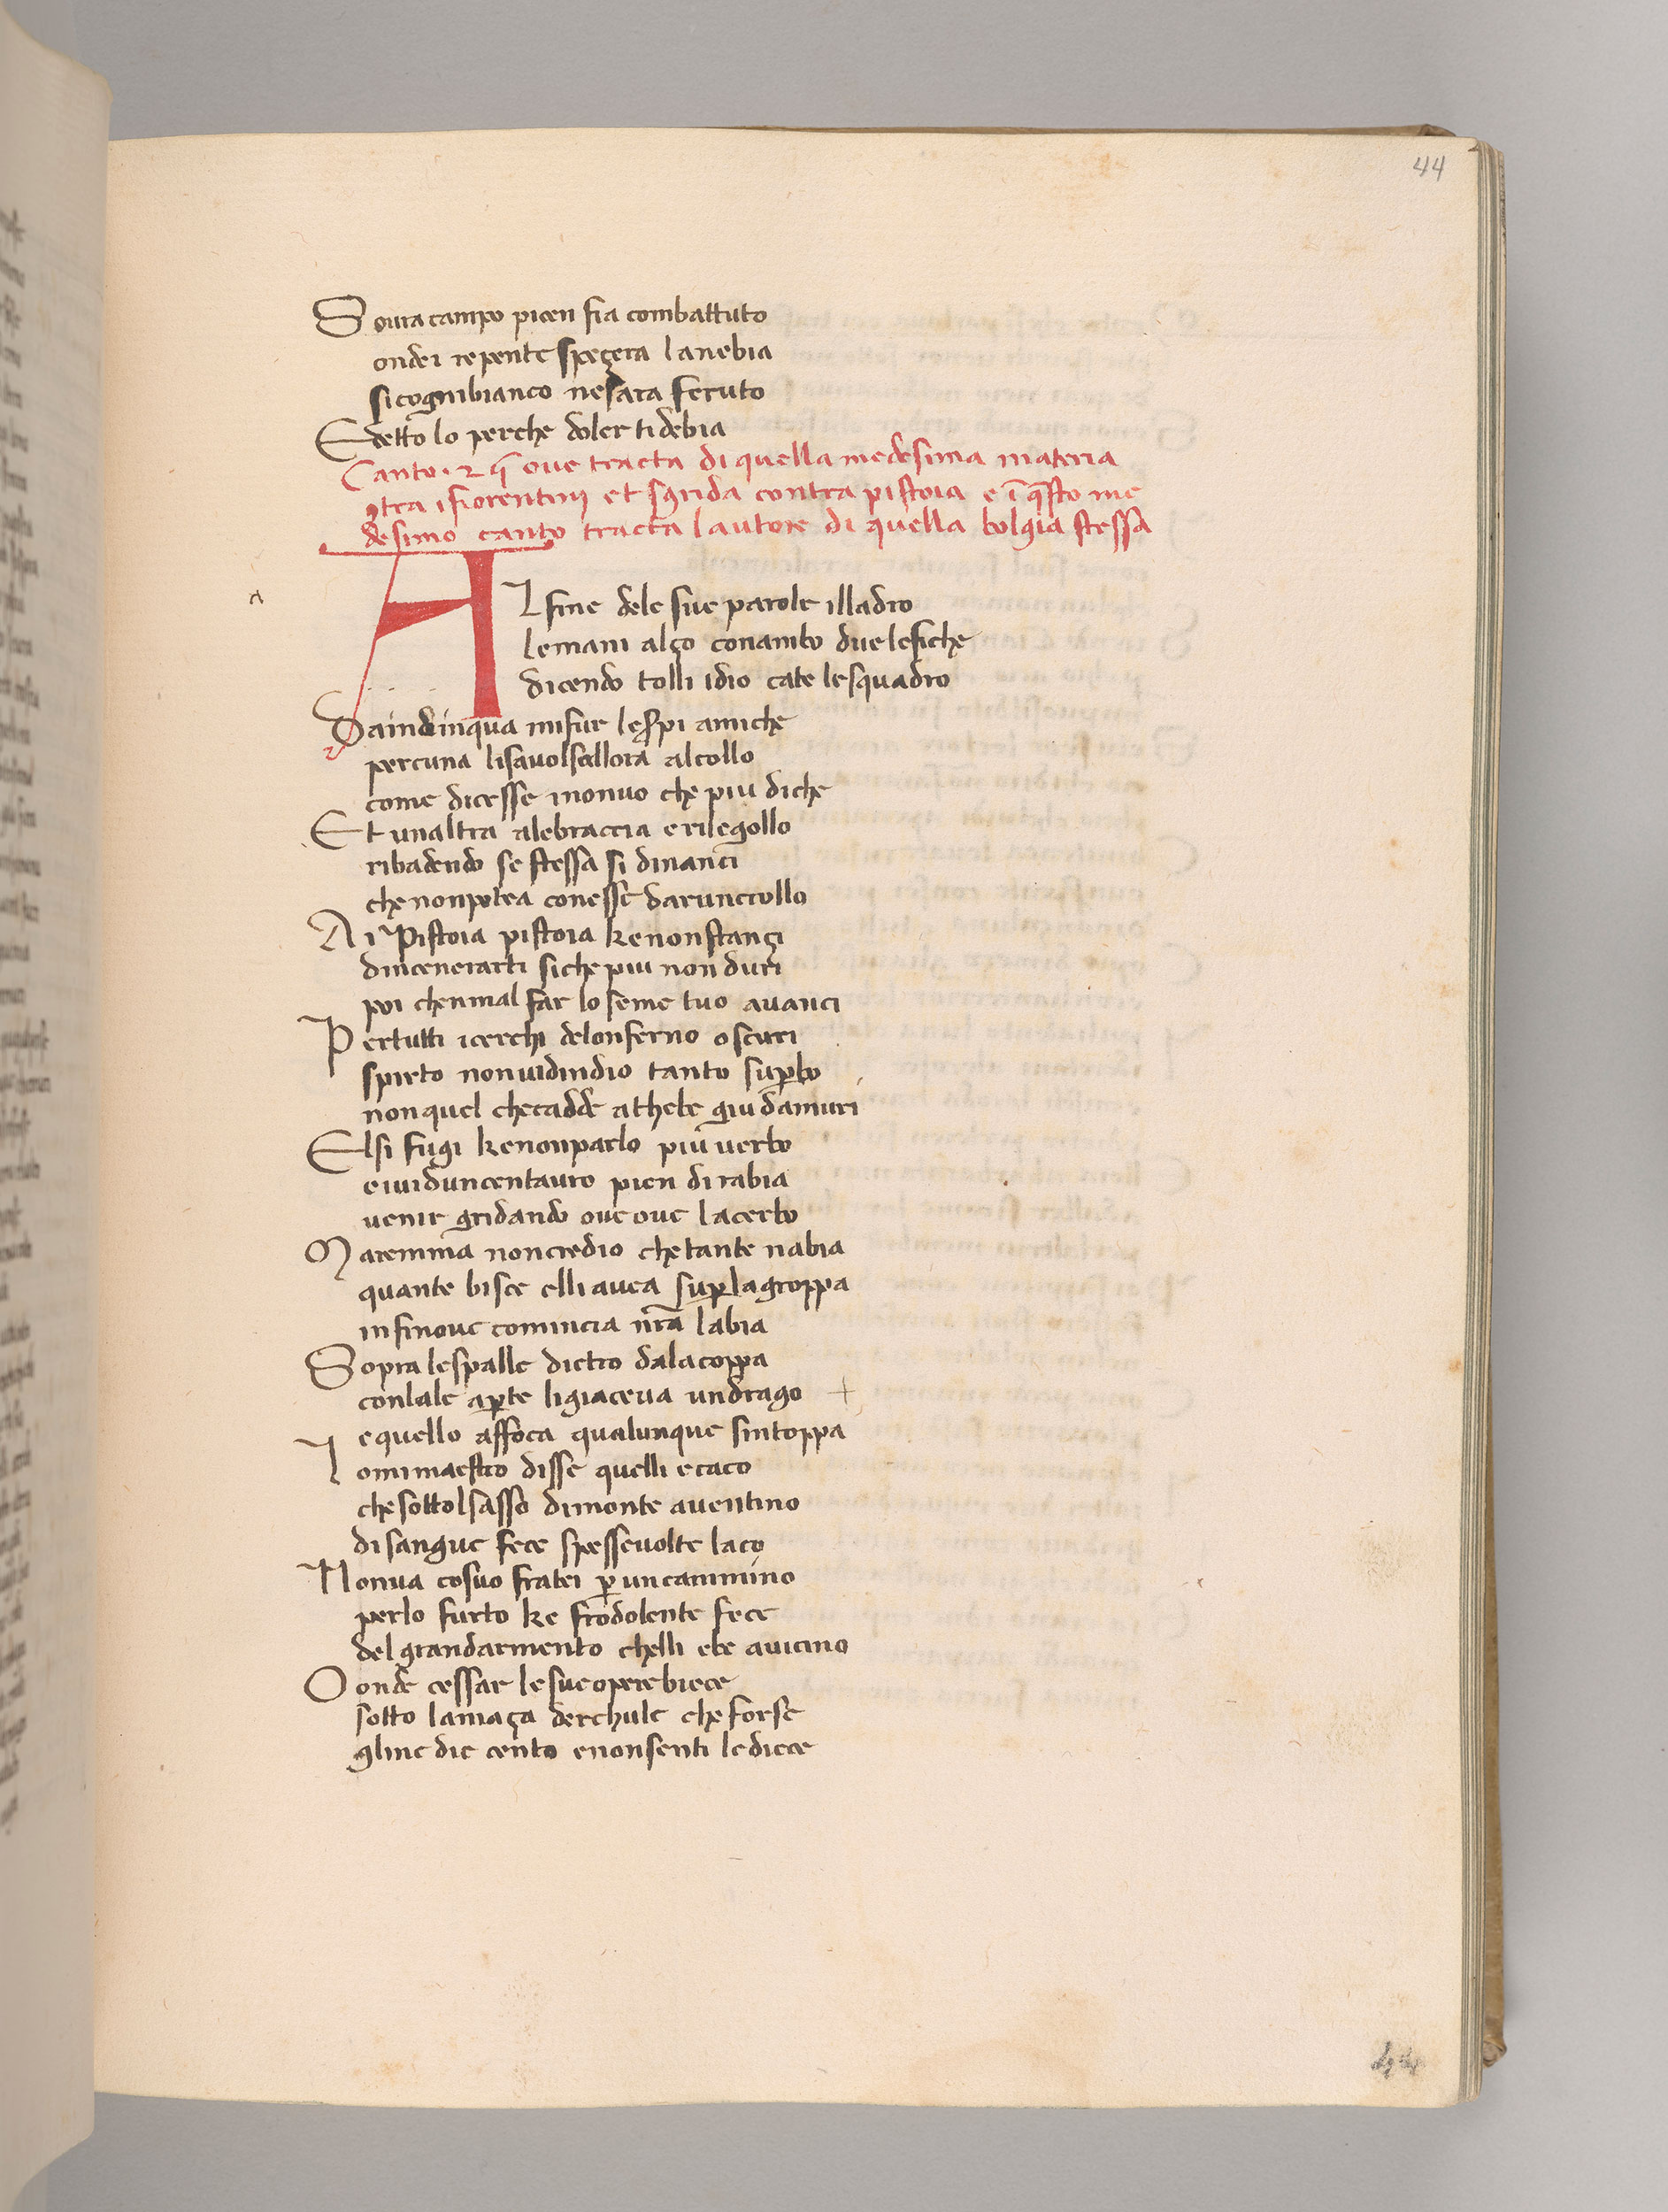 44
Soura campo picen fia combattuto
ondei repente speçera lanebia
sicognibianco nesara feruto
Edetto lo perche doler tidebia
Canto . 2 q̄ oue tracta di quella medesima materia
ꝯtra ifiorentini et sgrida contra pistoia e ī q̄sto me
desimo canto tracta lautore di quella bolgia stessa
a
Al fine dele sue parole illadro
lemani alço conambo duelefiche
dicendo tolli idio cate lesquadro
Daindinqua mifur leserpi amiche
percuna lisauolsallora alcollo
come dicesse inonuo che piu diche
Et unaltra alebraccia erilegollo
ribadendo se stessa si dinanci
che nonpotea conesse daruncrollo
Ai Pistoia pistoia kenonstançi
dincenerarti siche piu non duri
poi chenmal far lo seme tuo auanci
Pertutti icerchi delonferno oscuri
spirto nonuidindio tanto suꝑbo
nonquel checadde athebe giudamuri
Elsi fugi kenonparlo piu uerbo
eiuiduncentauro pien dirabia
uenir gridando oue oue lacerbo
Maremma noncredio chetante nabia
quante bisce elliauea suꝑlagroppa
infinoue comincia nr̄a labia
Sopra lespalle dietro dalacoppa
conlale aꝑte ligiaceua undrago +
equello affoca qualunque sintoppa
Iomimaestro disse quelli ecaco
che sottolsasso dimonte auentino
disangue fece spesseuolte laco
Nonua cosuo fratei ꝑ uncammino
perlo furto ke frodolente fece
delgrandarmento chelli ebe auicino
Oonde cessar lesueoperebiece
sotto lamaça derchule che forse
gline die cento enonsenti lediece
44